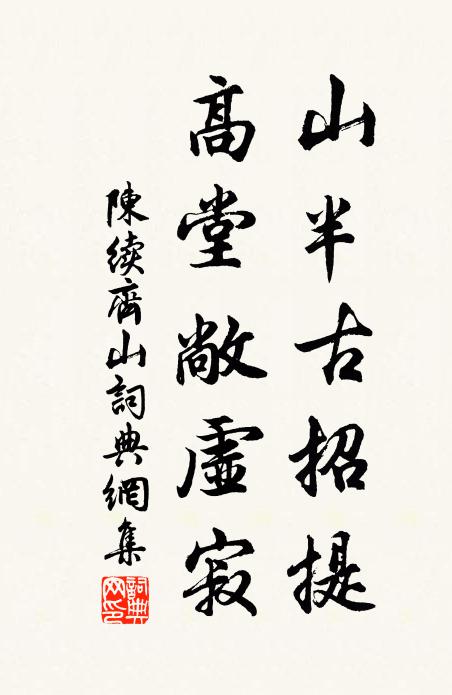 山半古招提
高堂敞虛寂
陳續齊山詞典網集
詞典網印